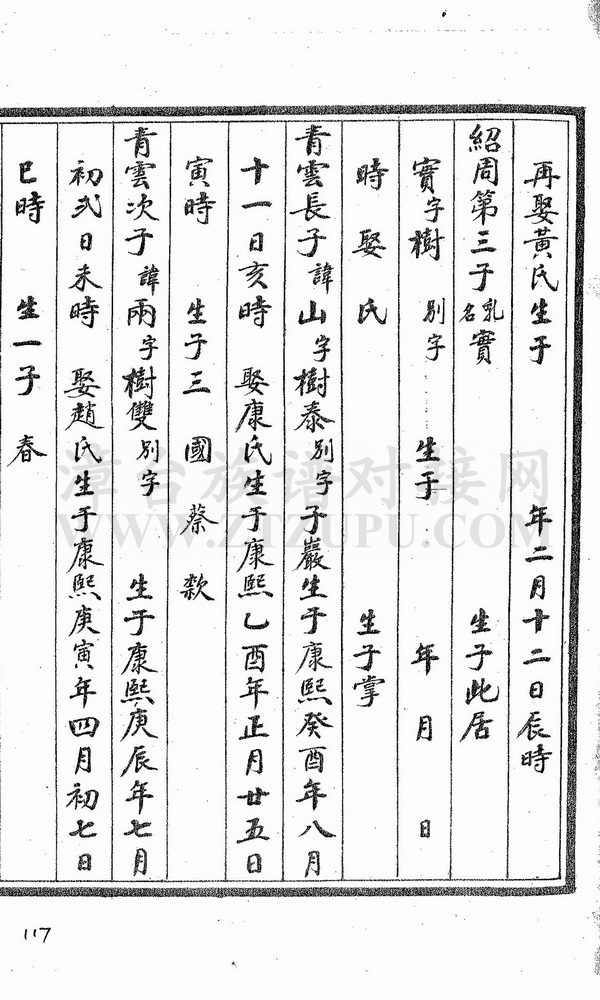 再娶黃氏生于 年二月十二日辰時
紹周第三子乳名實 生子此居
實字樹 別字 生于 年 月 日
時 娶 氏 生子掌
青雲長子諱山字樹泰別字子巖生于康熙癸酉年八月
十一日亥時 娶康氏生于康熙乙酉年正月廿五日
寅時 生子三 國 蔡 款
青雲次子諱兩字樹雙別字 生于康熙庚辰年七月
初弍日未時 娶趙氏生于康熙庚寅年四月初七日
巳時 生一子 春
漳台族谱对接网
WWW.ZTZUPU.COM
117